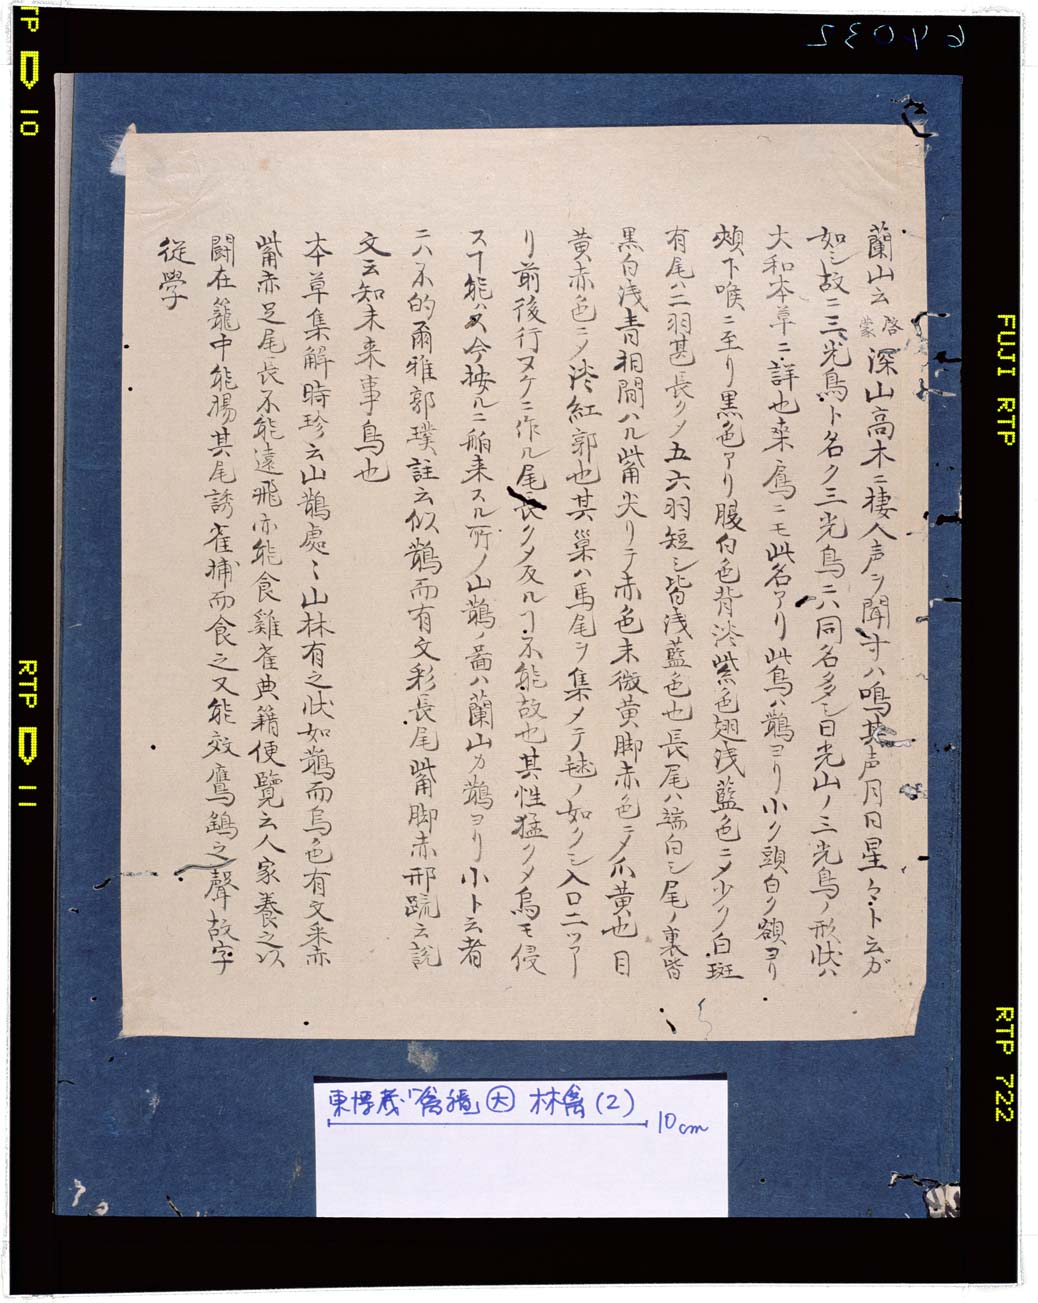 蘭山云啓蒙深山高木ニ棲人声ヲ聞寸ハ鳴其声月日星々ト云ガ
如シ故ニ三光鳥ト名ク三光鳥ニハ同名多シ日光山ノ三光鳥ノ形状ハ
大和本草ニ詳也桑鳸ニモ此名アリ此鳥ハ鵲ヨリ小ク頭白ク額ヨリ
頰下喉ニ至リ黒色アリ腹白色背淡紫色翅浅藍色ニメ少ク白斑
有尾ハ二羽甚長クメ五六羽短シ皆浅藍色也長尾ハ端白シ尾ノ裏皆
黒白浅青相間ハル觜尖リテ赤色末微黄脚赤色ニメ爪黄也目
黄赤色ニメ淡紅郭也其巣ハ馬尾ヲ集メテ毬ノ如クシ入口二ツアー
リ前後行ヌケニ作ル尾長クメ反ルヿ不能故也其性猛クメ烏モ侵
スヿ能ハス今按ルニ舶来スル所ノ山鵲ノ啚ハ蘭山カ鵲ヨリ小ト云者
ニハ不的爾雅郭璞註云似鵲而有文彩長尾觜脚赤邢䟽云説
文云知未来事鳥也
本草集解時珍云山鵲處〻山林有之状如鵲而烏色有文采赤
觜赤足尾長不能遠飛亦能食雞雀典籍便覽云人家養之以
鬪在籠中能揚其尾誘雀捕而食之又能效鷹鷂之聲故字
従學
東博蔵『禽譜』大 林禽(2)
10cm
64032
RTP 10
RTP 11
FUJI RTP
RTP 722